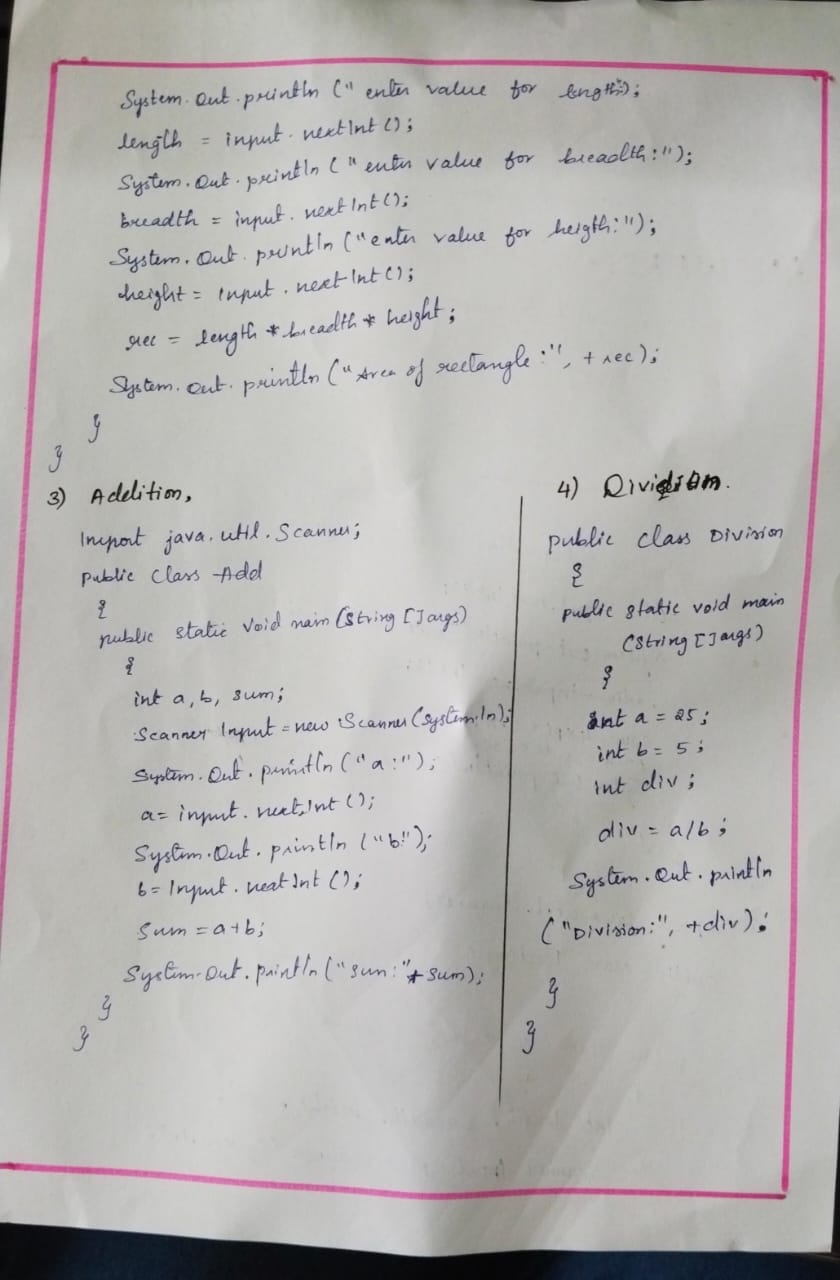 System.Out.println (" enter value for length:");
length = input.nextInt();
System.Out.println ("enter value for breadth:");
breadth = input.nextInt();
System.Out.println ("enter value for heigth:");
height = Input.nextInt();
rec = length * breadth * height;
System.out.println ("Area of rectangle:", + rec);
}
}
3) Addition,
Import java.util.Scanner;
public class Add
{
public static void main (String []args)
{
int a, b, sum;
Scanner Input = new Scanner (System.In);
System.Out.println ("a:");
a = input.nextInt ();
System.Out.println ("b:");
b = Input.nextInt ();
Sum = a+b;
System.Out.println ("sum:"+ sum);
}
}
4) Division.
public class Division
{
public static void main
(String []args)
{
int a = 25;
int b = 5;
int div;
div = a/b;
System.Out.println
("Division:", +div);
}
}